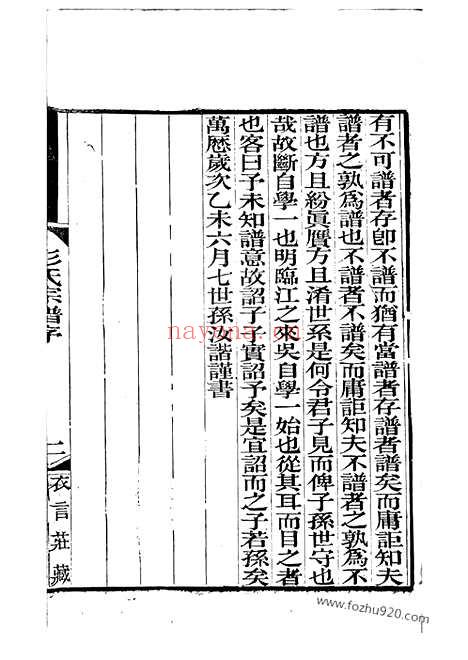 有不可譜者存卽不譜而猶有當譜者存譜者譜矣而庸詎知夫
譜者之孰爲譜也不譜者不譜矣而庸詎知夫不譜者之孰爲不
譜也方且紛眞贋方且淆世系是何令君子見而俾子孫世守也
哉故斷自學一也明臨江之來吳自學一始也從其耳而目之者
也客曰予未知譜意故詔子子實詔予矣是宜詔而之子若孫矣
萬曆歲次乙未六月七世孫汝諧謹書
氏宗譜序
二
衣言莊藏
nayona.cn
www.fozhu920.com